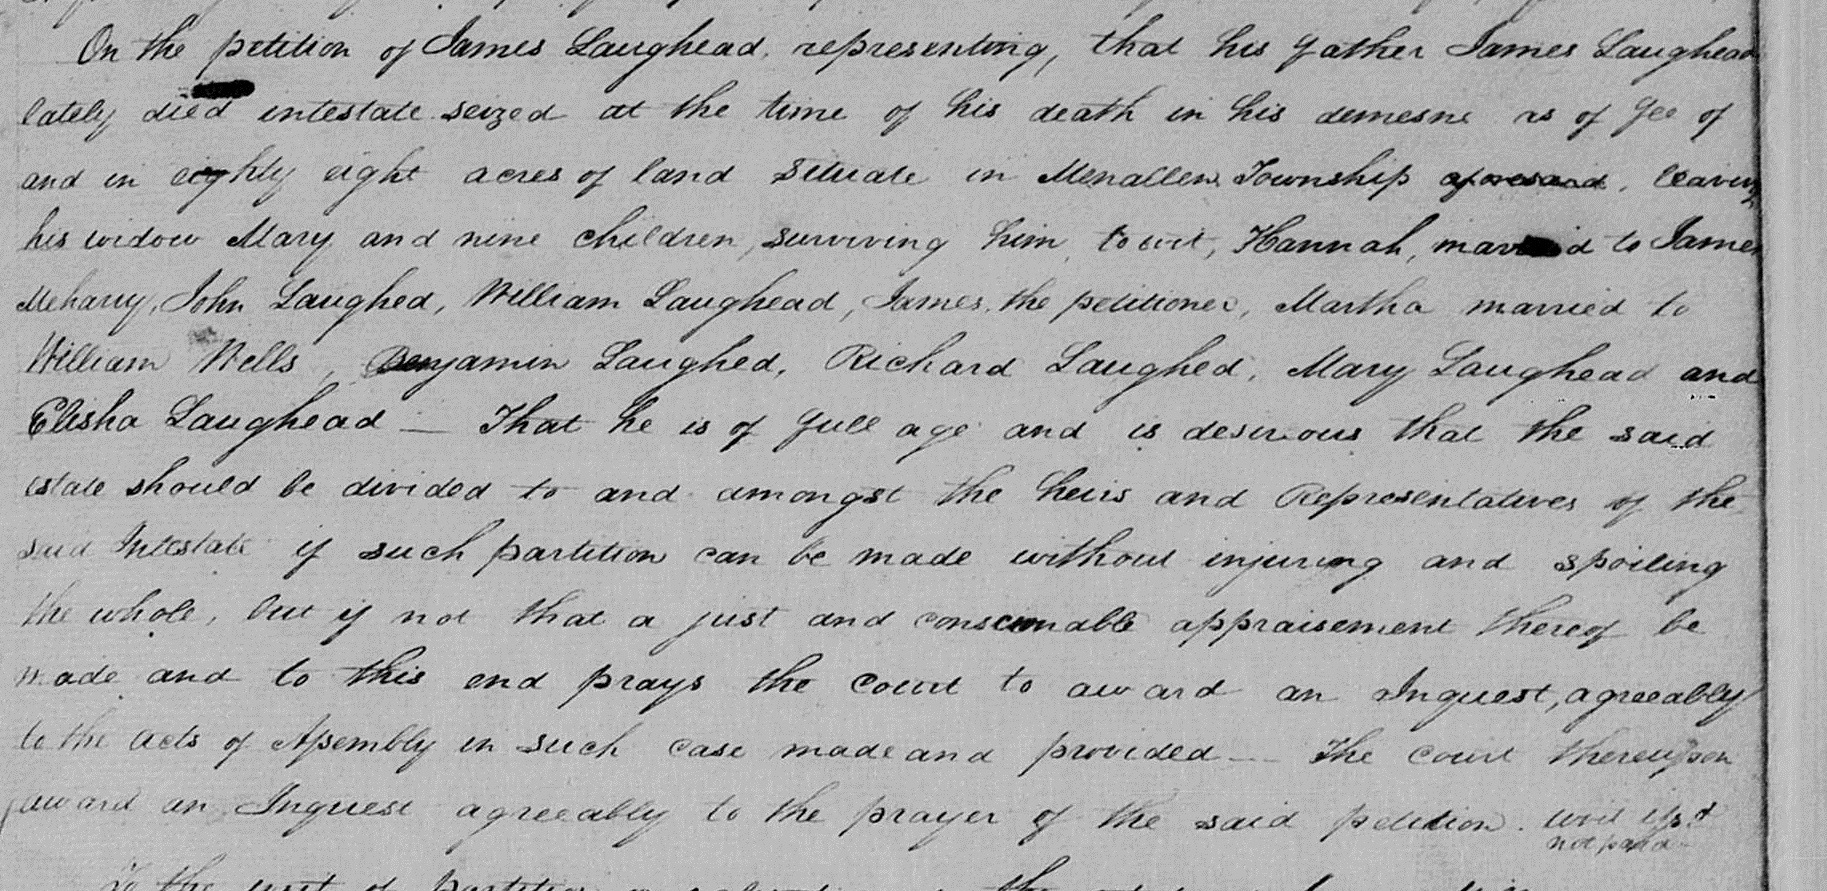 On the petition of James Laughead, representing, that his Father James Laughead
lately died intestate seized at the time of his death in his demesne as of Fee of
and in eighty eight acres of land situate in Menallen Township aforesaid, leaving
his widow Mary and nine children, surviving him, to wit, Hannah, married to James
Meharry, John Laughed, William Laughead, James, the petitioner, Martha married to
William Wells, Benjamin Laughed, Richard Laughed, Mary Laughead and
Elisha Laughead — That he is of full age and is desirous that the said
estate should be divided to and amongst the heirs and Representatives of the
said Intestate if such partition can be made without injuring and spoiling
the whole, but if not that a just and conscionable appraisement thereof be
made and to this end prays the court to award an Inquest, agreeably
to the acts of Assembly in such case made and provided — The court thereupon
award an Inquest agreeably to the prayer of the said petition. writ issd
not paid
To the writ of partition